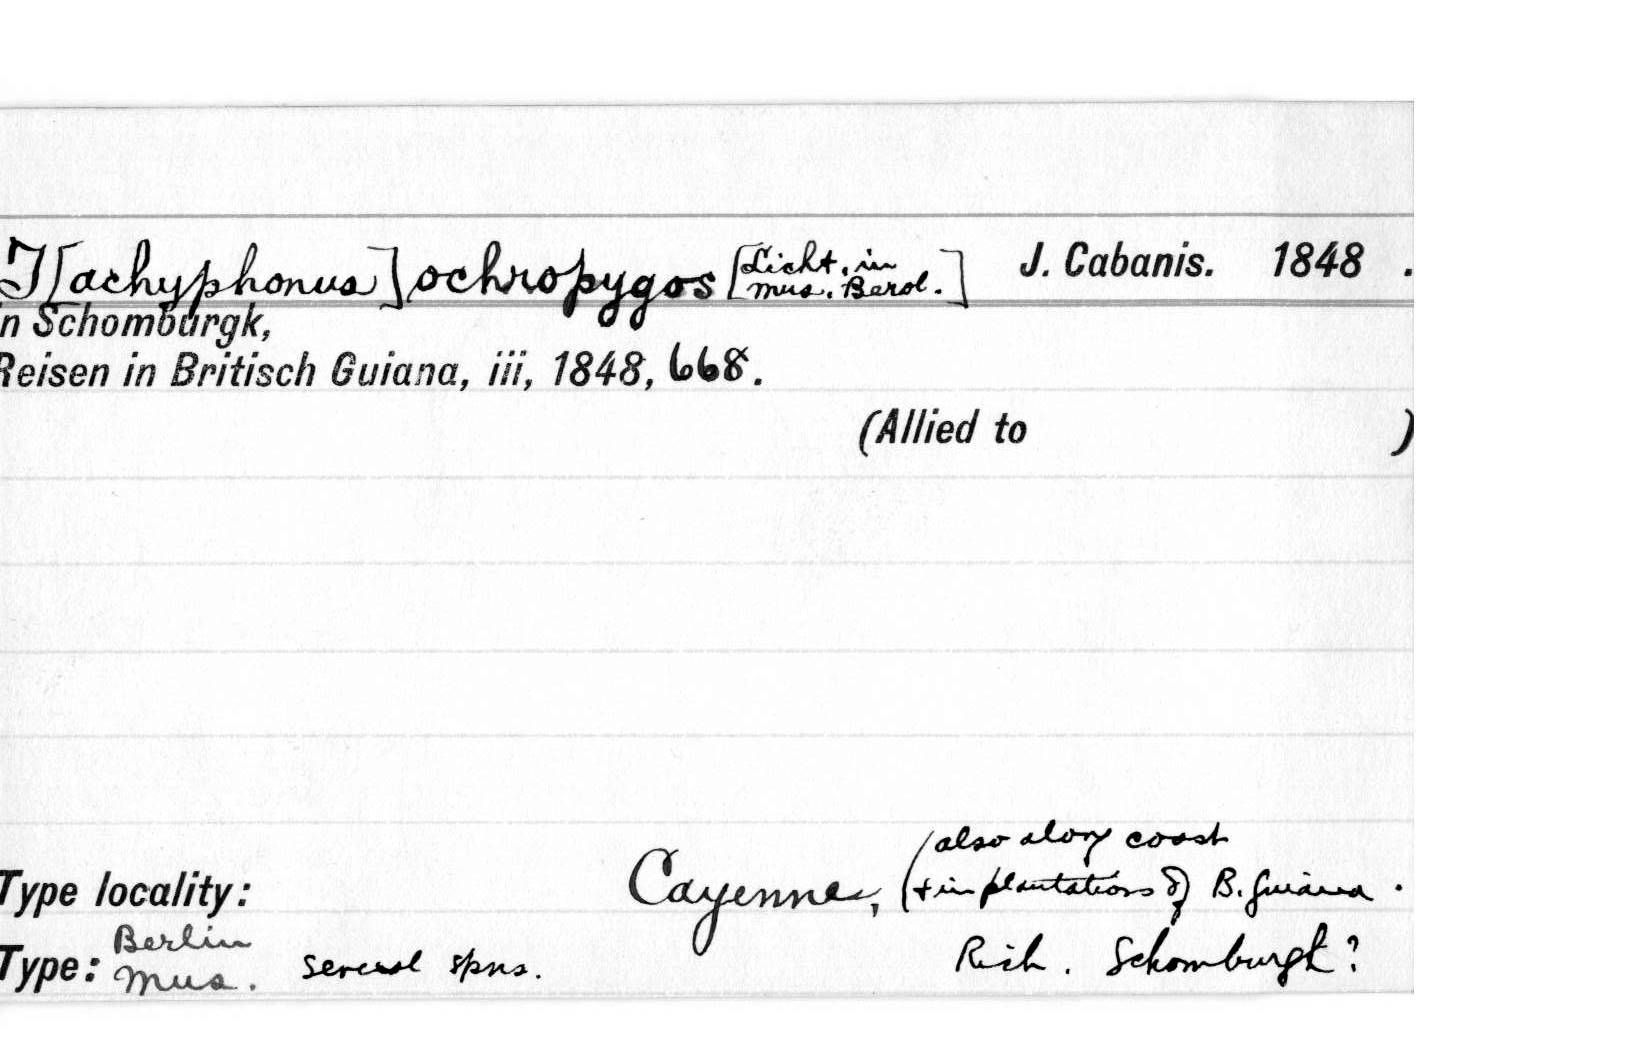 T[achyphonus] ochropygos [Licht. in Mus. Berol.] J. Cabanis. 1848 .
n Schomburgk,
Reisen in Britisch Guiana, iii, 1848, 668.
(Allied to )
(also along coast
Type locality: Cayenne, + in plantations of) B. Guiana .
Type: Berlin Mus. several spns. Rich. Schomburgk?